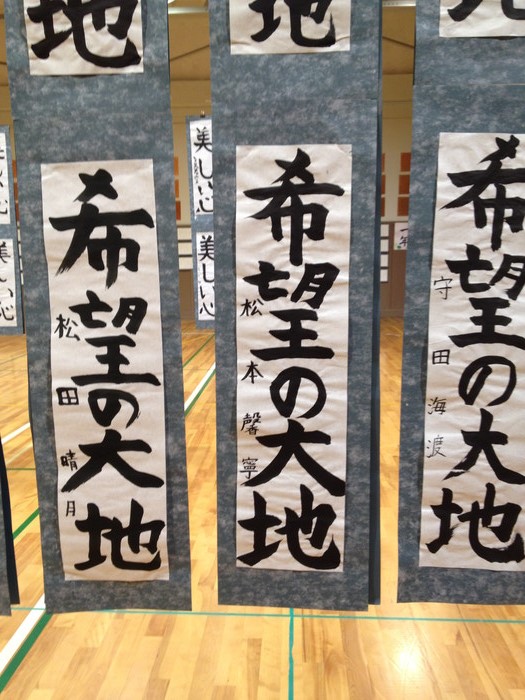 地
地
希望の大地
守田海渡
希望の大地
松本馨寧
希望の大地
松田晴月
美しい心
美しい心